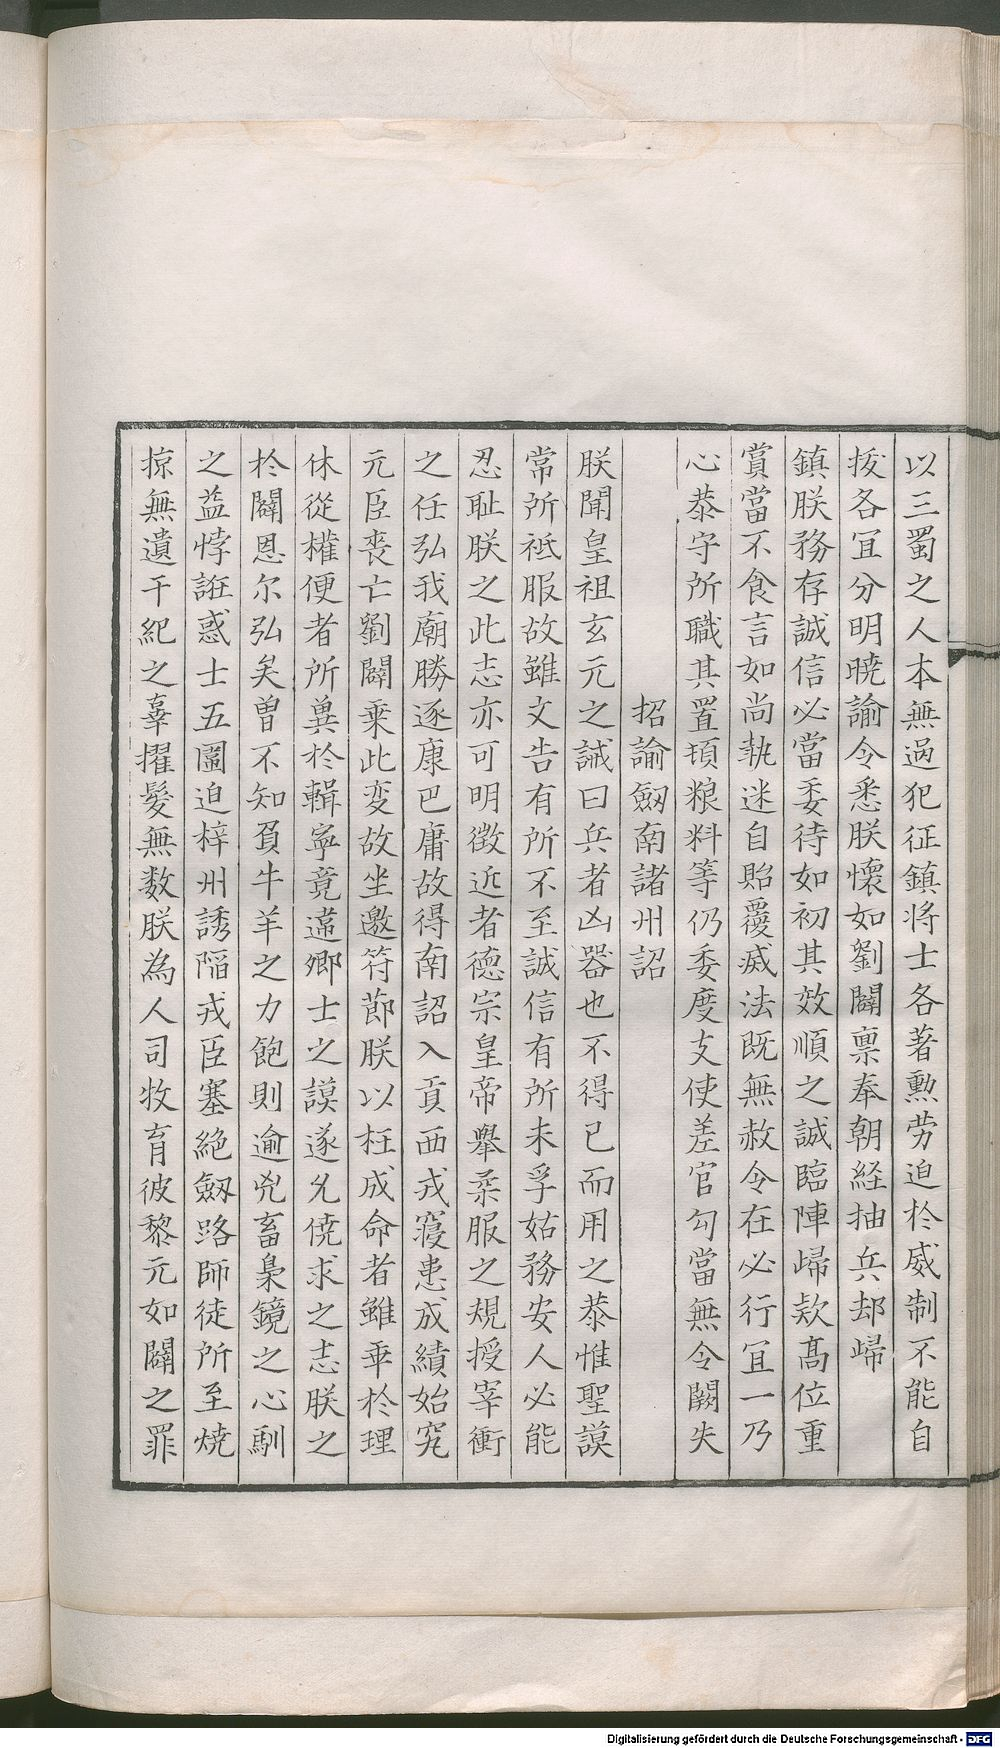 以三蜀之人本無過犯征鎮将士各著勲劳迫扵威制不能自
拔各宜分明曉諭令悉朕懷如劉闢禀奉朝経抽兵却歸
鎮朕務存誠信必當委待如初其效順之誠臨陣歸欵髙位重
賞當不食言如尚執迷自貽覆滅法既無赦令在必行宜一乃
心恭守所職其置頓粮料等仍委度支使差官勾當無令闕失
招諭劔南諸州詔
朕聞皇祖玄元之誡曰兵者凶器也不得已而用之恭惟聖謨
常所祗服故雖文告有所不至誠信有所未孚姑務安人必能
忍耻朕之此志亦可明徴近者德宗皇帝舉柔服之規授宰衝
之任弘我廟勝遂康巴庸故得南詔入貢西戎寢患成績始究
元臣丧亡劉闢乗此変故坐邀符莭朕以枉成命者雖乖扵理
体從權便者所兾扵輯寧竟違卿士之謨遂允僥求之志朕之
扵闢恩尓弘矣曽不知負牛羊之力飽則逾兇畜梟鏡之心馴
之益悖誑惑士五圖迫梓州誘䧟戎臣塞絶劔路師徒所至焼
掠無遺干紀之辜擢髪無数朕為人司牧育彼黎元如闢之罪
Digitalisierung gefördert durch die Deutsche Forschungsgemeinschaft - DFG